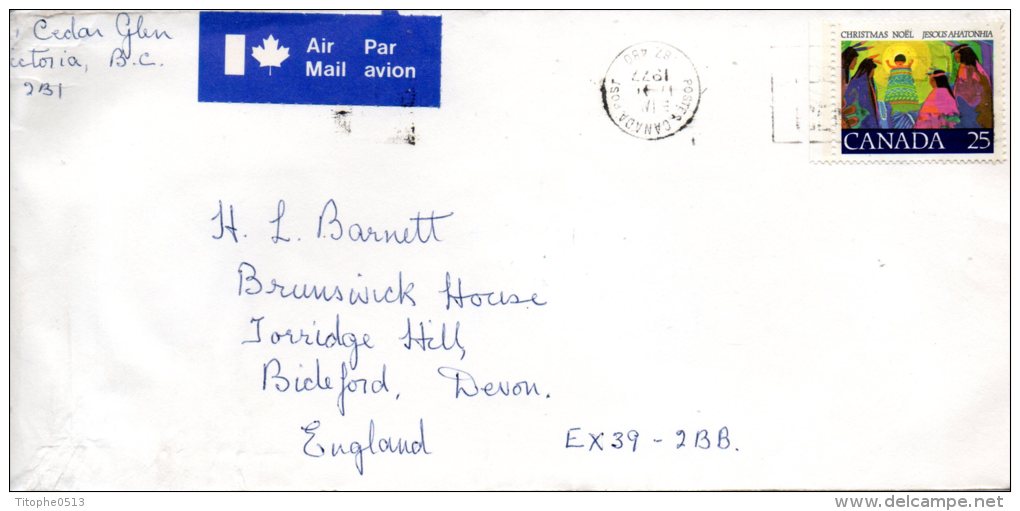 Cedar Glen
ctoria, B.C.
2B1
Air Par
Mail avion
POSTES CANADA POST
1977
CHRISTMAS NOËL JESOUS AHATONHIA
CANADA 25
H. L. Barnett
Brunswick House
Torridge Hill,
Bideford, Devon.
England EX39-2BB.
Titophe0513
delcampe.net